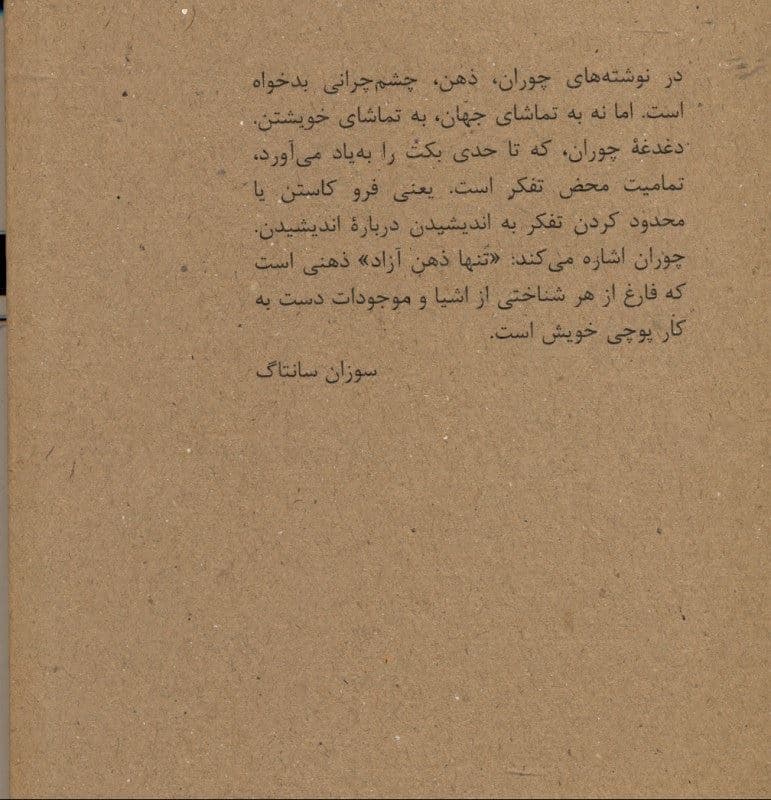 در نوشته‌های چوران، ذهن، چشم‌چرانی بدخواه
است. اما نه به تماشای جهان، به تماشای خویشتن.
دغدغهٔ چوران، که تا حدی بکت را به‌یاد می‌آورد،
تمامیت محض تفکر است. یعنی فرو کاستن یا
محدود کردن تفکر به اندیشیدن دربارهٔ اندیشیدن.
چوران اشاره می‌کند: «تنها ذهن آزاد» ذهنی است
که فارغ از هر شناختی از اشیا و موجودات دست به
کار پوچی خویش است.
سوزان سانتاگ